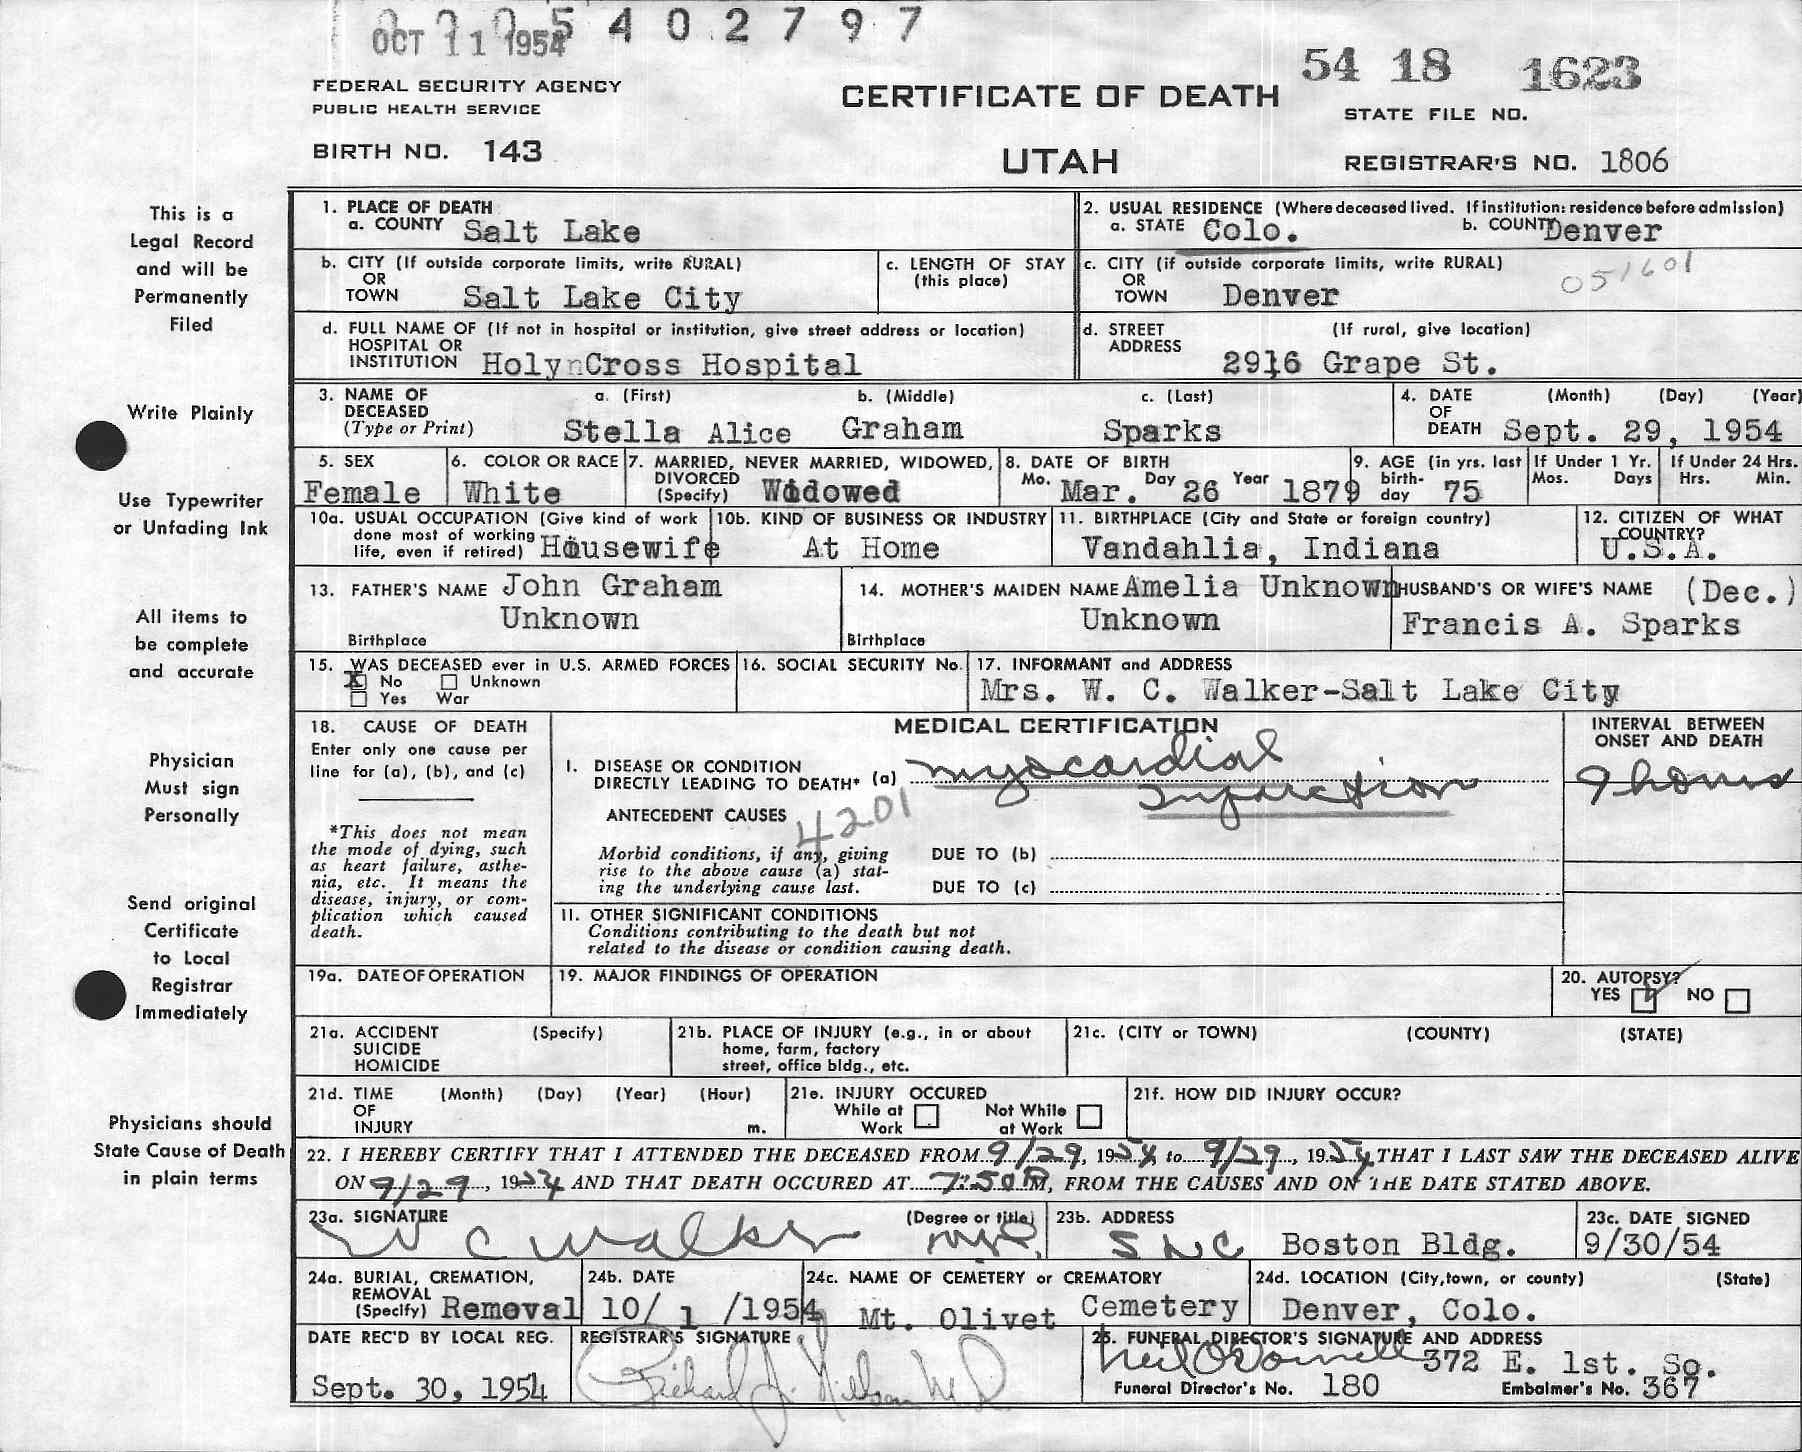 0005402797
OCT 11 1954
54 18 1623
FEDERAL SECURITY AGENCY
PUBLIC HEALTH SERVICE
CERTIFICATE OF DEATH
STATE FILE NO.
BIRTH NO. 143
UTAH
REGISTRAR'S NO. 1806
This is a
Legal Record
and will be
Permanently
Filed
Write Plainly
Use Typewriter
or Unfading Ink
All items to
be complete
and accurate
Physician
Must sign
Personally
Send original
Certificate
to Local
Registrar
Immediately
Physicians should
State Cause of Death
in plain terms
1. PLACE OF DEATH
a. COUNTY Salt Lake
2. USUAL RESIDENCE (Where deceased lived. If institution: residence before admission)
a. STATE Colo. b. COUNTY Denver
b. CITY (If outside corporate limits, write RURAL)
OR
TOWN Salt Lake City
c. LENGTH OF STAY
(this place)
c. CITY (if outside corporate limits, write RURAL)
OR
TOWN Denver
051601
d. FULL NAME OF (If not in hospital or institution, give street address or location)
HOSPITAL OR
INSTITUTION HolynCross Hospital
d. STREET (If rural, give location)
ADDRESS 2916 Grape St.
3. NAME OF DECEASED (Type or Print)
a. (First) b. (Middle) c. (Last)
Stella Alice Graham Sparks
4. DATE OF DEATH (Month) (Day) (Year)
Sept. 29, 1954
5. SEX
Female
6. COLOR OR RACE
White
7. MARRIED, NEVER MARRIED, WIDOWED,
DIVORCED
(Specify) Widowed
8. DATE OF BIRTH
Mo. Mar. Day 26 Year 1879
9. AGE (in yrs. last
birth-
day 75
If Under 1 Yr.
Mos. Days
If Under 24 Hrs.
Hrs. Min.
10a. USUAL OCCUPATION (Give kind of work
done most of working
life, even if retired) Housewife
10b. KIND OF BUSINESS OR INDUSTRY
At Home
11. BIRTHPLACE (City and State or foreign country)
Vandahlia, Indiana
12. CITIZEN OF WHAT
COUNTRY?
U.S.A.
13. FATHER'S NAME John Graham
Unknown
Birthplace
14. MOTHER'S MAIDEN NAME Amelia Unknown
Unknown
Birthplace
HUSBAND'S OR WIFE'S NAME (Dec.)
Francis A. Sparks
15. WAS DECEASED ever in U.S. ARMED FORCES
X No Unknown
Yes War
16. SOCIAL SECURITY No.
17. INFORMANT and ADDRESS
Mrs. W. C. Walker-Salt Lake City
18. CAUSE OF DEATH
Enter only one cause per
line for (a), (b), and (c)
*This does not mean
the mode of dying, such
as heart failure, asthe-
nia, etc. It means the
disease, injury, or com-
plication which caused
death.
MEDICAL CERTIFICATION
INTERVAL BETWEEN
ONSET AND DEATH
I. DISEASE OR CONDITION
DIRECTLY LEADING TO DEATH* (a) myocardial
infarction
9 hours
ANTECEDENT CAUSES
4201
Morbid conditions, if any, giving
rise to the above cause (a) stat-
ing the underlying cause last.
DUE TO (b)
DUE TO (c)
II. OTHER SIGNIFICANT CONDITIONS
Conditions contributing to the death but not
related to the disease or condition causing death.
19a. DATE OF OPERATION
19. MAJOR FINDINGS OF OPERATION
20. AUTOPSY?
YES NO
21a. ACCIDENT (Specify)
SUICIDE
HOMICIDE
21b. PLACE OF INJURY (e.g., in or about
home, farm, factory
street, office bldg., etc.
21c. (CITY or TOWN) (COUNTY) (STATE)
21d. TIME (Month) (Day) (Year) (Hour)
OF
INJURY m.
21e. INJURY OCCURED
While at Work Not While at Work
21f. HOW DID INJURY OCCUR?
22. I HEREBY CERTIFY THAT I ATTENDED THE DECEASED FROM 9/29, 1954, to 9/29, 1954, THAT I LAST SAW THE DECEASED ALIVE
ON 9/29, 1954 AND THAT DEATH OCCURED AT 7:50 P.M, FROM THE CAUSES AND ON THE DATE STATED ABOVE.
23a. SIGNATURE (Degree or title)
W C Walker M.D.
23b. ADDRESS
SLC Boston Bldg.
23c. DATE SIGNED
9/30/54
24a. BURIAL, CREMATION,
REMOVAL
(Specify) Removal
24b. DATE
10/ 1 /1954
24c. NAME OF CEMETERY or CREMATORY
Mt. Olivet Cemetery
24d. LOCATION (City,town, or county) (State)
Denver, Colo.
DATE REC'D BY LOCAL REG.
Sept. 30, 1954
REGISTRAR'S SIGNATURE
Richard J.
M.D.
25. FUNERAL DIRECTOR'S SIGNATURE AND ADDRESS
Neil O'Donnell 372 E. 1st. So.
Funeral Director's No. 180 Embalmer's No. 367